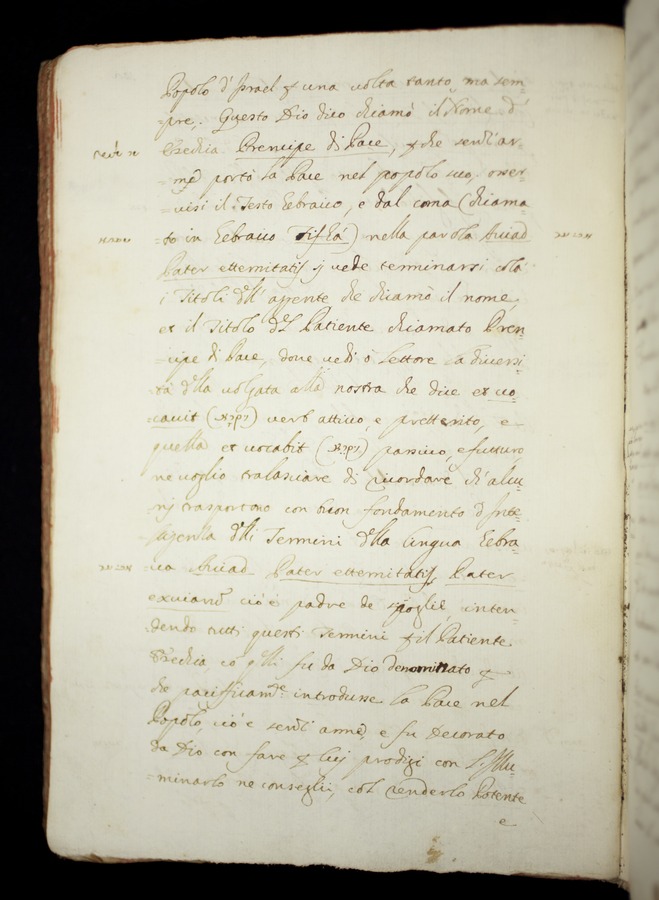 Popolo d'Israel per una volta tanto, ma sem-
-pre. Questo Dio dico chiamò il Nome d'
Ezechia Prencipe di Pace, perche senz'ar-
-me portò la Pace nel popolo suo, osser-
-visi il Testo Ebraico, e dal coma (chiama-
-to in Ebraico Tifhá) nella parola Aviad
Pater etternitatis si vede terminarsi colà
i Titoli dell'aggente che chiamò il nome,
et il Titolo del Patiente chiamato Pren-
-cipe di Pace, dove vedi ò Lettore la diversi-
-tà della volgata alla nostra che dice et vo-
-cavit (ויקרא) verb attivo, e pretterito, e
quella et vocabit (ויקרא) passivo, e futturo
ne voglio tralasciare di ricordare ch'alcu-
-ni trasportono con buon fondamento d'Inte-
-ligenza delli Termini della lingua Ebra-
-ica Aviad Pater etternitatis, Pater
exuiarum cio è padre de spoglie inten-
-dendo tutti questi Termini per il Patiente
Ezechia, co quali fu da Dio denominato per
che pacificamte introdusse la Pace nel
Popolo, cio è senz'arme, e fu Decorato
da Dio con fare per lui prodigi con l'Illu-
-minarlo ne consegli, col renderlo Potente
e